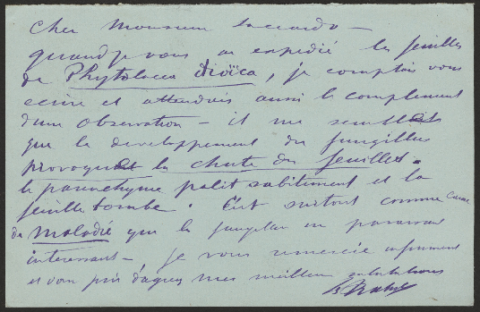 Cher Monsieur Saccardo –
quand je vous ai expedié les feuilles
de Phytolacca dioïca, je comptais vous
ecrire et attendais aussi le complement
d'une observation – il me semblait
que le developpement du fungillus
provoquait la chute des feuilles.
le parenchyme palit subitement et la
feuille tombe. C'est surtout comme cause
de Maladie que le fungillus en
interessant – je vous remercie
et vous prie d'agréer mes meilleures salutations